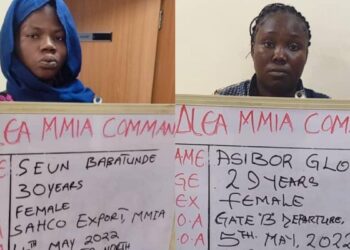 LEA MMIA COMMAN
SEUN BABATUNDE
30 YEARS
FEMALE
SAHCO EXPORT, MMIA
4TH MAY 2022
NORTH
DLEA MMIA CO
AME: ASIBOR GLO
GE 29 YEARS
EX FEMALE
O.A GATE 'B' DEPARTURE,
O.A 5TH MAY, 2022